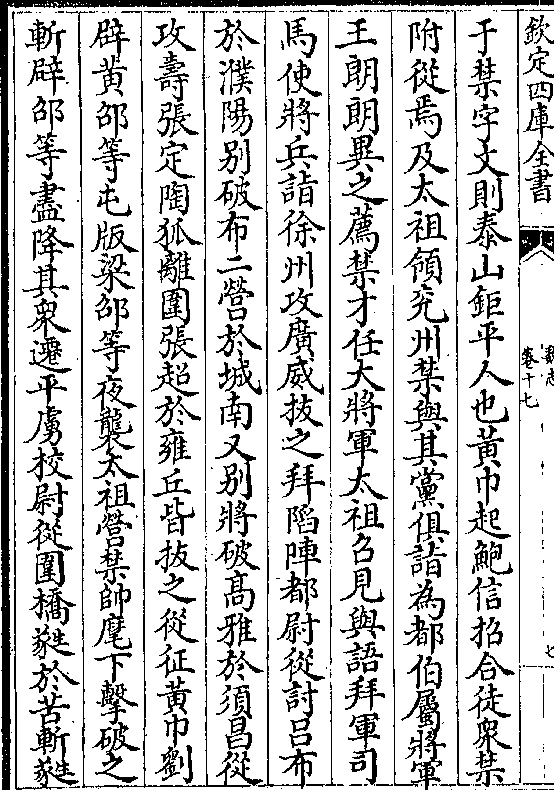 欽定四庫全書
魏志
卷十七
七
于禁字文則泰山鉅平人也黄巾起鮑信招合徒衆禁
附從焉及太祖領兖州禁與其黨俱詣為都伯屬將軍
王朗朗異之薦禁才任大將軍太祖召見與語拜軍司
馬使將兵詣徐州攻廣威拔之拜陷陣都尉從討吕布
於濮陽别破布二營於城南又别將破髙雅於須昌從
攻壽張定陶狐離圍張超於雍丘皆拔之從征黄巾劉
辟黄邵等屯版梁邵等夜襲太祖營禁帥麾下擊破之
斬辟邵等盡降其衆遷平虜校尉從圍橋蕤於苦斬蕤